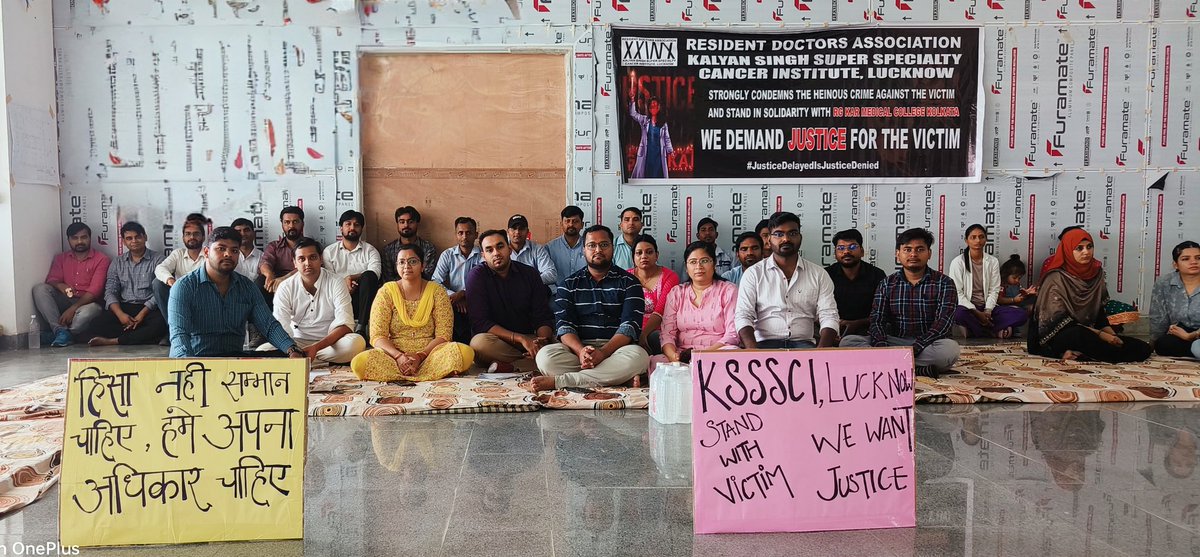 RESIDENT DOCTORS ASSOCIATION
KALYAN SINGH SUPER SPECIALTY
CANCER INSTITUTE, LUCKNOW
STRONGLY CONDEMNS THE HEINOUS CRIME AGAINST THE VICTIM
AND STAND IN SOLIDARITY WITH RG KAR MEDICAL COLLEGE KOLKATA
WE DEMAND JUSTICE FOR THE VICTIM
#JusticeDelayedIsJusticeDenied
JUSTICE
Furamate
Furamate
Furamate
Furamate
Furamate
Furamate
हिंसा नहीं सम्मान
चाहिए, हमे अपना
अधिकार चाहिए
KSSSCI, LUCKNOW
STAND
WITH
VICTIM
WE WANT
JUSTICE
n OnePlus